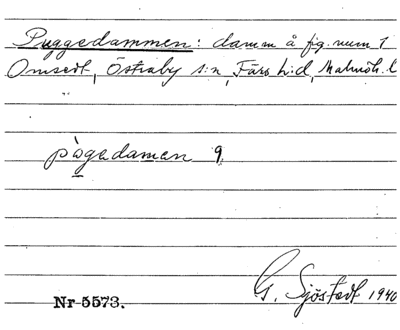 Puggedammen: damm å fig. num 1
Omsedt, Östraby s:n, Färs h:d, Malmöh. l
pågedamen 9.
G. Sjöstedt 1940
Nr 5573.